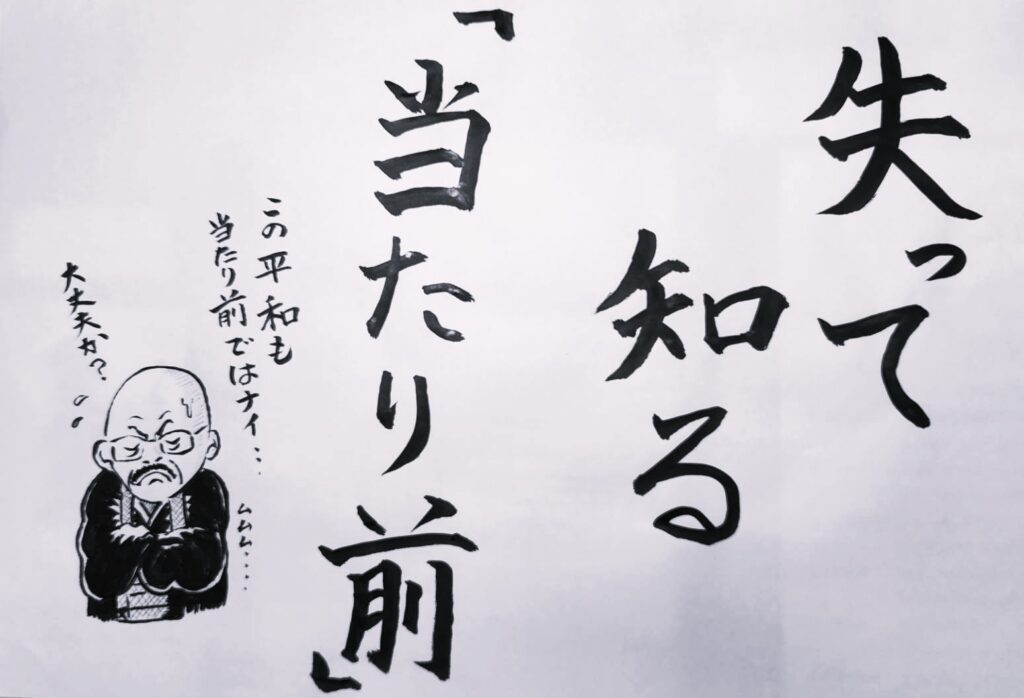 失って
知る
「当たり前」
この平和も
当たり前ではナイ…
大丈夫か?
ムムム....